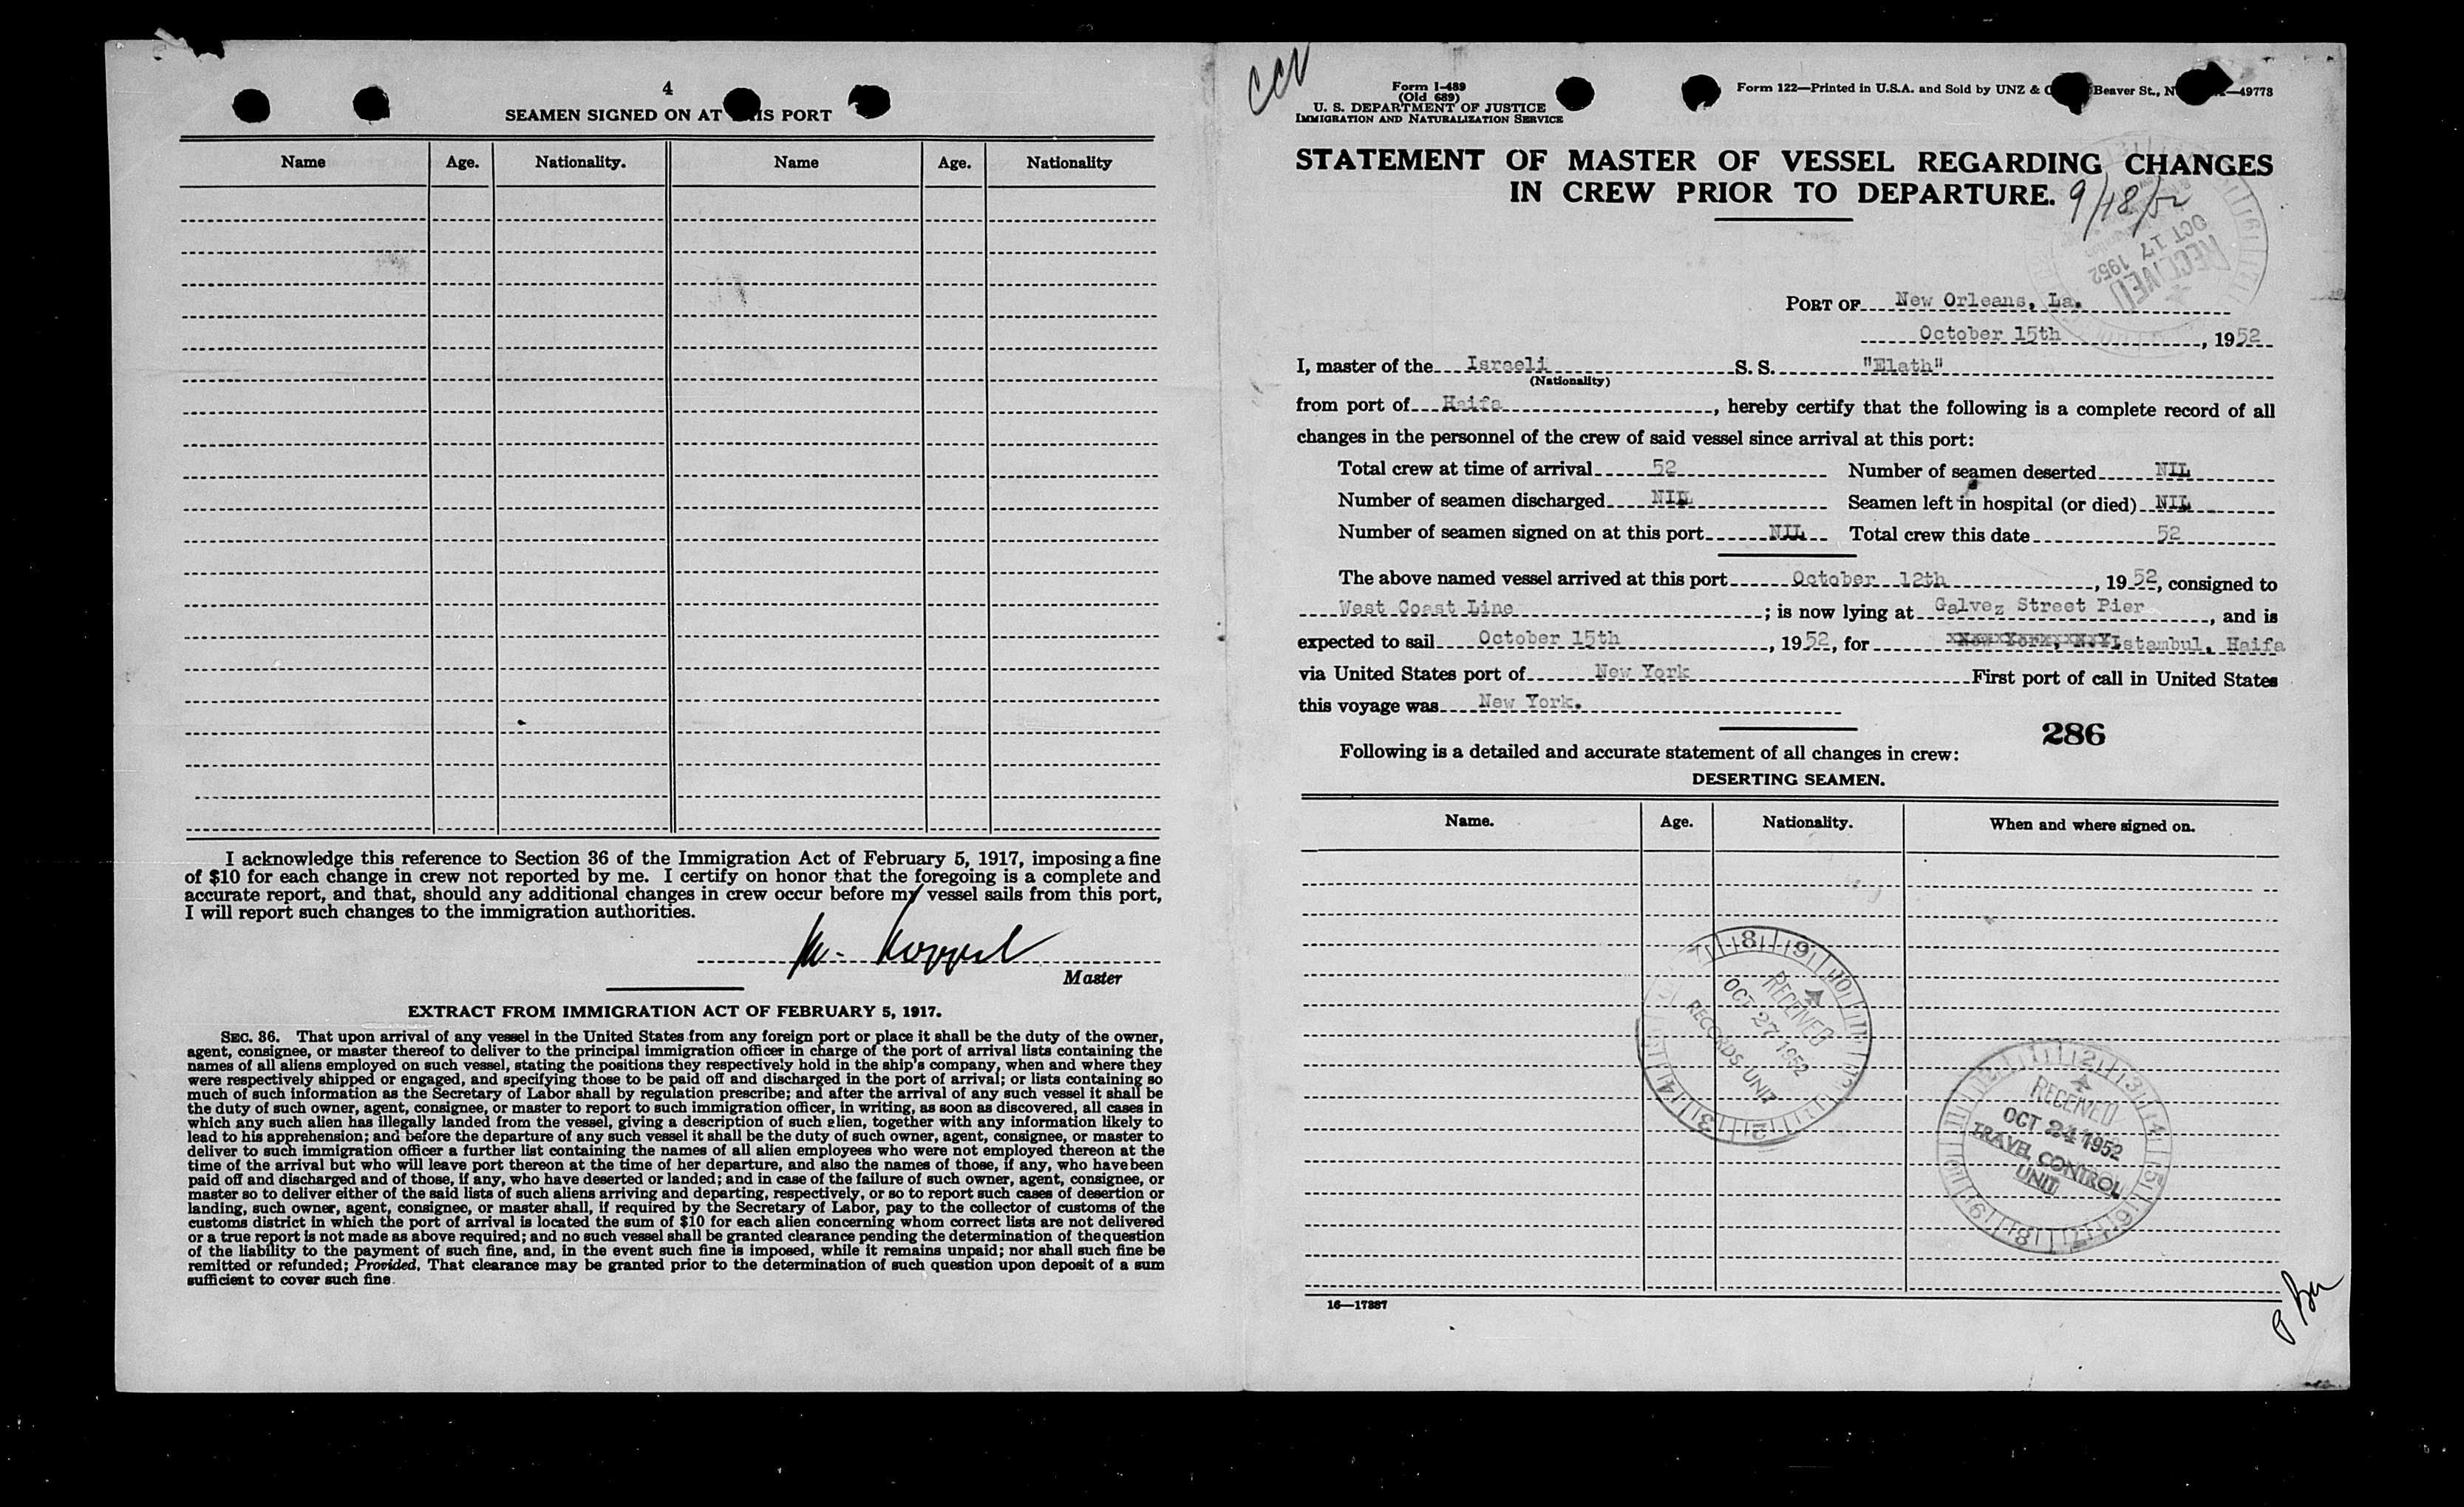 4
SEAMEN SIGNED ON AT THIS PORT
Name Age. Nationality. Name Age. Nationality
I acknowledge this reference to Section 36 of the Immigration Act of February 5, 1917, imposing a fine
of $10 for each change in crew not reported by me. I certify on honor that the foregoing is a complete and
accurate report, and that, should any additional changes in crew occur before my vessel sails from this port,
I will report such changes to the immigration authorities.
Master
EXTRACT FROM IMMIGRATION ACT OF FEBRUARY 5, 1917.
SEC. 36. That upon arrival of any vessel in the United States from any foreign port or place it shall be the duty of the owner,
agent, consignee, or master thereof to deliver to the principal immigration officer in charge of the port of arrival lists containing the
names of all aliens employed on such vessel, stating the positions they respectively hold in the ship's company, when and where they
were respectively shipped or engaged, and specifying those to be paid off and discharged in the port of arrival; or lists containing so
much of such information as the Secretary of Labor shall by regulation prescribe; and after the arrival of any such vessel it shall be
the duty of such owner, agent, consignee, or master to report to such immigration officer, in writing, as soon as discovered, all cases in
which any such alien has illegally landed from the vessel, giving a description of such alien, together with any information likely to
lead to his apprehension; and before the departure of any such vessel it shall be the duty of such owner, agent, consignee, or master to
deliver to such immigration officer a further list containing the names of all alien employees who were not employed thereon at the
time of the arrival but who will leave port thereon at the time of her departure, and also the names of those, if any, who have been
paid off and discharged and of those, if any, who have deserted or landed; and in case of the failure of such owner, agent, consignee, or
master so to deliver either of the said lists of such aliens arriving and departing, respectively, or so to report such cases of desertion or
landing, such owner, agent, consignee, or master shall, if required by the Secretary of Labor, pay to the collector of customs of the
customs district in which the port of arrival is located the sum of $10 for each alien concerning whom correct lists are not delivered
or a true report is not made as above required; and no such vessel shall be granted clearance pending the determination of the question
of the liability to the payment of such fine, and, in the event such fine is imposed, while it remains unpaid; nor shall such fine be
remitted or refunded; Provided, That clearance may be granted prior to the determination of such question upon deposit of a sum
sufficient to cover such fine.
Form I-489
(Old 689)
U. S. DEPARTMENT OF JUSTICE
IMMIGRATION AND NATURALIZATION SERVICE
Form 122—Printed in U.S.A. and Sold by UNZ & Beaver St., —49778
STATEMENT OF MASTER OF VESSEL REGARDING CHANGES
IN CREW PRIOR TO DEPARTURE.
9/18/52
RECEIVED
OCT 17 1952
PORT OF New Orleans, La.
October 15th, 1952
I, master of the Israeli S. S. "Elath"
(Nationality)
from port of Haifa, hereby certify that the following is a complete record of all
changes in the personnel of the crew of said vessel since arrival at this port:
Total crew at time of arrival 52 Number of seamen deserted NIL
Number of seamen discharged NIL Seamen left in hospital (or died) NIL
Number of seamen signed on at this port NIL Total crew this date 52
The above named vessel arrived at this port October 12th, 1952, consigned to
West Coast Line; is now lying at Galvez Street Pier, and is
expected to sail October 15th, 1952, for Istambul, Haifa
via United States port of New York First port of call in United States
this voyage was New York.
286
Following is a detailed and accurate statement of all changes in crew:
DESERTING SEAMEN.
Name. Age. Nationality. When and where signed on.
RECEIVED
OCT 27 1952
RECORDS UNIT
RECEIVED
OCT 24 1952
TRAVEL CONTROL
UNIT
16—17387